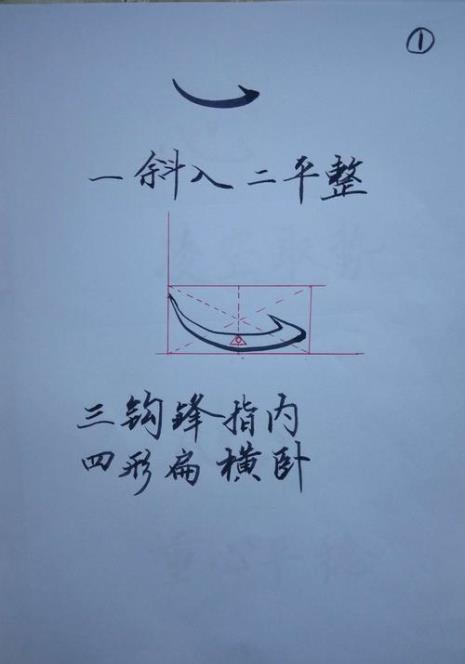 ①
一斜入二平整
三钩锋指内
四形扁横卧